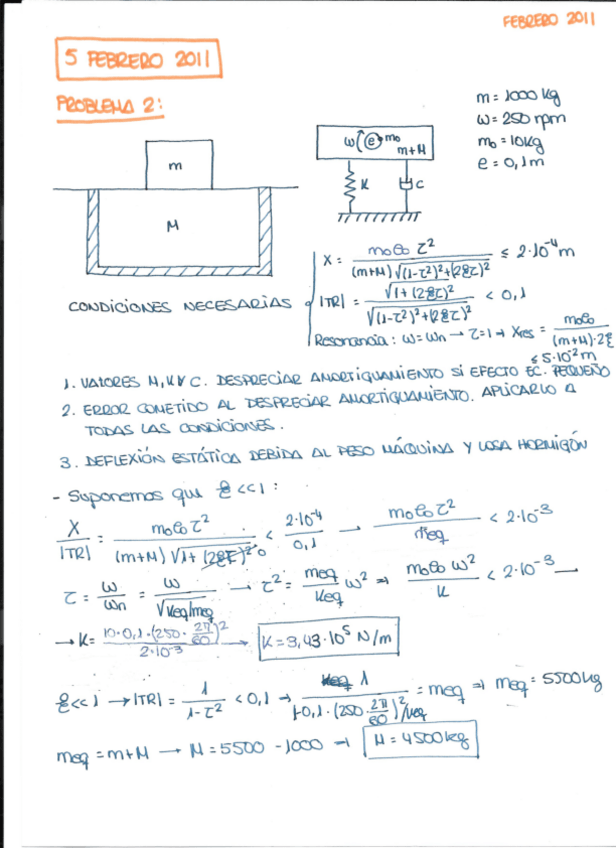 FEBRERO 2011
5 FEBRERO 2011
PROBLEMA 2:
m = 1000 kg
ω = 250 rpm
m₀ = 10 kg
e = 0,1 m
m
M
ω e m₀
m+M
K
C
X = m₀e₀ τ² / ((m+M) √((1-τ²)²+(2ξτ)²)) ≤ 2·10⁻⁴ m
CONDICIONES NECESARIAS
|TR| = √(1+(2ξτ)²) / √((1-τ²)²+(2ξτ)²) < 0,1
Resonancia: ω=ωn → τ=1 → Xres = m₀e₀ / ((m+M)·2ξ) ≤ 5·10⁻² m
1. VALORES M, K Y C. DESPRECIAR AMORTIGUAMIENTO SI EFECTO EC. PEQUEÑO
2. ERROR COMETIDO AL DESPRECIAR AMORTIGUAMIENTO. APLICARLO A
TODAS LAS CONDICIONES.
3. DEFLEXIÓN ESTÁTICA DEBIDA AL PESO MÁQUINA Y LOSA HORMIGÓN
- Suponemos que ξ<<1:
X / |TR| = m₀e₀τ² / ((m+M) √(1+(2ξτ)²)) < 2·10⁻⁴ / 0,1 → m₀e₀τ² / meq < 2·10⁻³
τ = ω/ωn = ω / √(Keq/meq) → τ² = meq/Keq ω² ⇒ m₀e₀ω² / K < 2·10⁻³ →
→ K = 10·0,1·(250·2π/60)² / 2·10⁻³ → K = 3,43·10⁵ N/m
ξ<<1 → |TR| = 1 / (1-τ²) < 0,1 → 1 / (-0,1·(250·2π/60)²/Keq) = meq ⇒ meq = 5500kg
meq = m+M → M = 5500 - 1000 → M = 4500kg